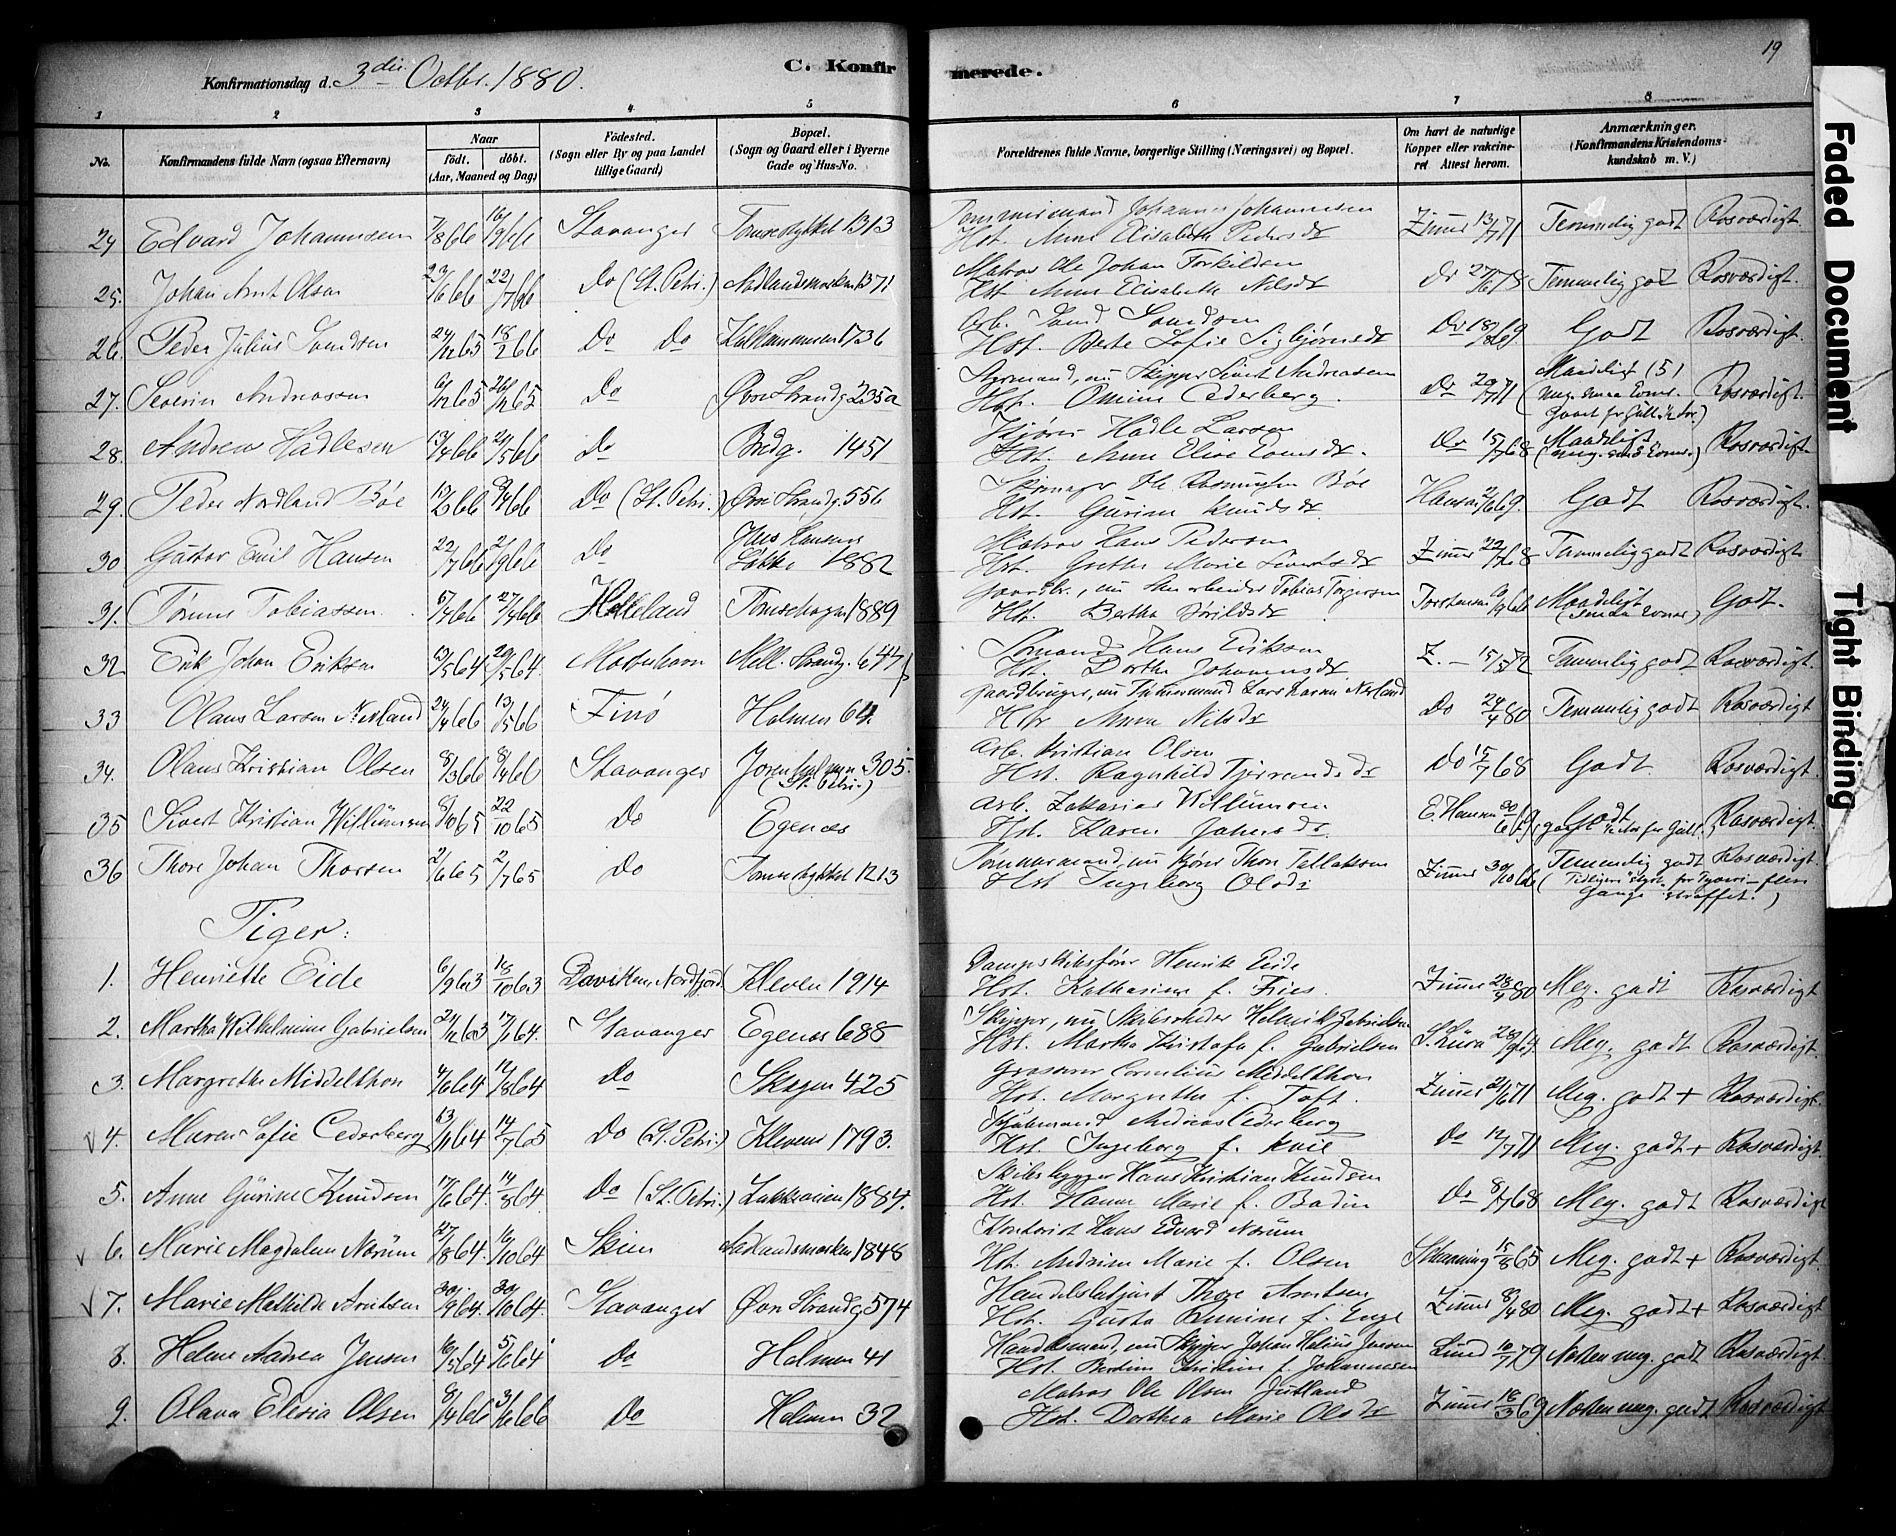 19
Konfirmationsdag d. 3die Octbr. 1880.
C. Konfirmerede.
1 2 3 4 5 6 7 8
No.
Konfirmandens fulde Navn (ogsaa Efternavn)
Naar
født. døbt.
(Aar, Maaned og Dag)
Fødested.
(Sogn eller By og paa Landet
tillige Gaard)
Bopæl.
(Sogn og Gaard eller i Byerne
Gade og Hus-No.
Forældrenes fulde Navne, borgerlige Stilling (Næringsvei) og Bopæl.
Om havt de naturlige
Kopper eller vakcine-
ret Attest herom.
Anmærkninger.
(Konfirmandens Kristendoms-
kundskab m. V.)
24 Edvard Johannesen 7/8 66 16/9 66 Stavanger Tomsestykket 1313 Tømmermand Johannes Johannesen
Hst. Anne Elisabeth Pedersdr Zimmer 13/7 71 Temmelig godt Rosværdigt
25. Johan Arnt Olsen 23/6 66 22/7 66 Do (St. Petri.) Nadlandsmarken 1371 Matros Ole Johan Torkildsen
Hst Anne Elisabeth Nilsdr Do 27/6 78 Temmelig godt Rosværdigt.
26. Peder Julius Svendsen 24/12 65 18/2 66 Do Do Kalhammeren 1736 Arb. Svend Svendsen
Hst. Berte Sofie Sigbjørnsdr Do 18/8 69 Godt Rosværdigt.
27. Severin Andreassen 6/12 65 26/12 65 Do Øvre Strandg. 235a Styrmand, nu Skipper Sivert Andreassen
Hst. Omine Cederberg. Do 20/7 71 Maadeligt (5) Rosværdigt.
28. Andreas Hadlesen 13/4 66 21/5 66 Do Bredg. 1451 Kjører Hadle Larsen
Hst. Anne Elise Evensdr. Do 15/7 68 Maadeligt Rosværdigt.
29. Peder Nordland Bøe 13/2 66 8/4 66 Do (St. Petri.) Øvre Strandg 556 Rasmussen Bøe
Hst. Gurine Knudsdr. Hansen 2/6 69 Godt Rosværdigt.
30 Gustav Emil Hansen 22/7 66 2/9 66 Do Jens Hansens
Løkke 1882 Matros Hans Pedersen
Hst. Grethe Marie Sivertsdr Zimmer 22/7 68 Temmelig godt Rosværdigt
31. Tønnes Tobiassen. 17/4 66 27/4 66 Helleland Tomsehagen 1889 Gaardbr., nu Stenarbeider Tobias Torgersen
Hst. Bertha Torildsdr Torstensen 6/9 66 Maadeligt Godt.
32 Erik Johan Eriksen 13/5 64 29/5 64. Mosterhavn Mell. Strandg. 647 Sømand Hans Eriksen
Hst. Dorthe Johannesdr. Z. – 15/5 72 Temmelig godt. Rosværdigt.
33 Olaus Larsen Nerland 24/4 66 13/5 66 Finø Holmen 64. Gaardbruger, nu Tømmermand Lars Larsen Nerland
Hst Anna Nilsdr Do 24/4 80 Temmelig godt Rosværdigt
34. Olaus Kristian Olsen 8/3 66 8/4 66 Stavanger 305.
(St. Petri.) Arb. Kristian Olsen
Hst. Ragnhild Do 15/7 68 Godt Rosværdigt.
35 Sivert Kristian Willumsen 8/10 65 22/10 65 Do Egenæs Arb. Zakarias Willumsen
Hst. Karen Jahnsdr. E. Hansen 30/6 69 Godt Rosværdigt.
36 Thore Johan Thorsen 2/6 65 2/7 65 Do Tomsestykket 1213 Tømmermand, nu Kjører Thore Tallaksen
Hst Ingeborg Olsdr Zimmer 30/10 66 Temmelig godt Rosværdigt.
(Tidligere for Tyveri – flere
Gange straffet.)
Piger:
1. Henriette Eide 6/9 63 18/10 63 Daviken, Nordfjord Kleven 1914 Dampskibsfører Henrik Eide
Hst. Katharine f. Fries. Zimmer 28/4 80 Meg. godt Rosværdigt
2. Martha Wilhelmine Gabrielsen 21/12 63 17/1 64. Stavanger Egenæs 688 Skipper, nu Skibsreder Helmik Gabrielsen
Hst. Martha Kristofa f. Gabrielsen S. Lura 28/9 64. Meg. godt Rosværdigt.
3. Margrethe Middelthon 4/6 64 12/8 64 Do Skagen 425 Graverer Cornelius Middelthon
Hst. Margrethe f. Toft. Zimmer 21/6 71 Meg. godt + Rosværdigt.
√ 4. Maren Sofie Cederberg 13/11 64 14/7 65 Do (St. Petri.) Kleven 1793. Kjøbmand Andreas Cederberg
Hst. Ingeborg f. Kvie Do 12/7 71 Meg. godt + Rosværdigt.
5. Anne Gurine Knudsen 17/6 64. 14/8 64. Do (St. Petri.) Lakkeveien 1884. Skibsbygger Hans Kristian Knudsen
Hst. Hanne Marie f. Bodin Do 8/7 68 Meg. godt. Rosværdigt.
√ 6. Marie Magdalene Nørum 27/8 64. 16/10 64 Skien Nadlandsmarken 1848 Kontorist Hans Edvard Nørum
Hst. Andrine Marie f. Olsen Schanning 15/8 65 Meg. godt + Rosværdigt.
√ 7. Marie Mathilde Arntsen 30/9 64. 30/10 64. Stavanger Øvre Strandg 574 Handelsbetjent Thore Arntsen
Hst. Gusta f. Enge Zimmer 8/4 80 Meg. godt + Rosværdigt.
8. Helene Andrea Jensen 16/5 64 5/6 64 Do Holmen 41 Handelsmand, nu Skipper Johan Helius Jensen
Hst. Bertine Kristine f. Johannesen Lund 16/7 79 Næsten meg. godt Rosværdigt.
9. Olava Elisia Olsen 8/4 66 3/6 66 Do Holmen 32 Matros Ole Olsen Jutland
Hst. Dorthea Marie Olsdr Zimmer 18/3 69 Næsten meg. godt Rosværdigt
Faded Document
Tight Binding